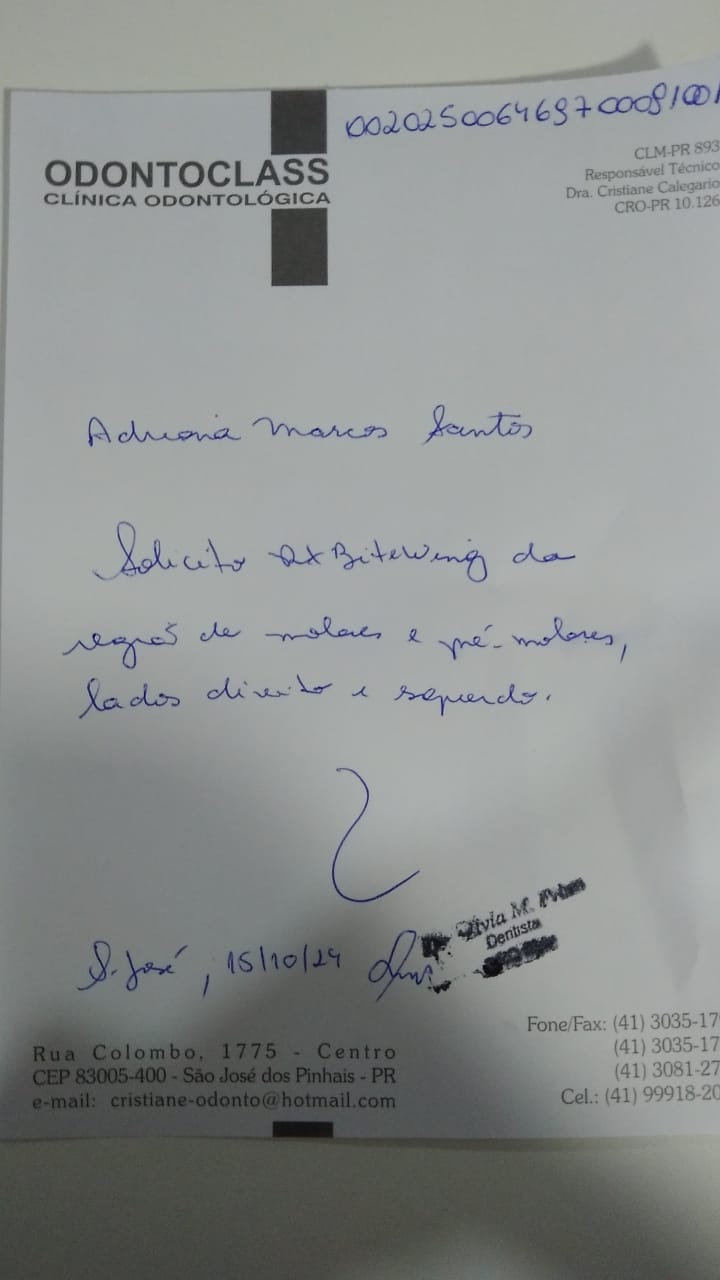 00202500646970009100
CLM-PR 893
Responsável Técnico
Dra. Cristiane Calegario
CRO-PR 10.126
ODONTOCLASS
CLÍNICA ODONTOLÓGICA
Adriana Marcos Santos
Solicito RX BiteWing da
região de molares e pré-molares,
lados direito e esquerdo.
S. José, 15/10/24
M.
Dentista
Rua Colombo, 1775 - Centro
CEP 83005-400 - São José dos Pinhais - PR
e-mail: cristiane-odonto@hotmail.com
Fone/Fax: (41) 3035-17
(41) 3035-17
(41) 3081-27
Cel.: (41) 99918-20